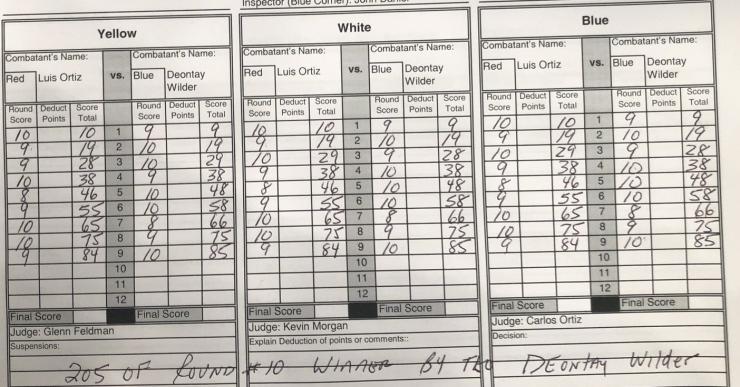 Inspector (Blue Corner): John
Yellow
Combatant's Name: Combatant's Name:
Red Luis Ortiz vs. Blue Deontay
Wilder
Round Deduct Score Round Deduct Score
Score Points Total Score Points Total
10 10 1 9 9
9 19 2 10 19
9 28 3 10 29
10 38 4 9 38
8 46 5 10 48
9 55 6 10 58
10 65 7 8 66
10 75 8 9 75
9 84 9 10 85
10
11
12
Final Score Final Score
Judge: Glenn Feldman
Suspensions:
White
Combatant's Name: Combatant's Name:
Red Luis Ortiz vs. Blue Deontay
Wilder
Round Deduct Score Round Deduct Score
Score Points Total Score Points Total
10 10 1 9 9
9 19 2 10 19
10 29 3 9 28
9 38 4 10 38
8 46 5 10 48
9 55 6 10 58
10 65 7 8 66
10 75 8 9 75
9 84 9 10 85
10
11
12
Final Score Final Score
Judge: Kevin Morgan
Explain Deduction of points or comments::
Blue
Combatant's Name: Combatant's Name:
Red Luis Ortiz vs. Blue Deontay
Wilder
Round Deduct Score Round Deduct Score
Score Points Total Score Points Total
10 10 1 9 9
9 19 2 10 19
10 29 3 9 28
9 38 4 10 38
8 46 5 10 48
9 55 6 10 58
10 65 7 8 66
10 75 8 9 75
9 84 9 10 85
10
11
12
Final Score Final Score
Judge: Carlos Ortiz
Decision:
205 OF ROUND #10 WINNER BY TKO DEONTAY Wilder